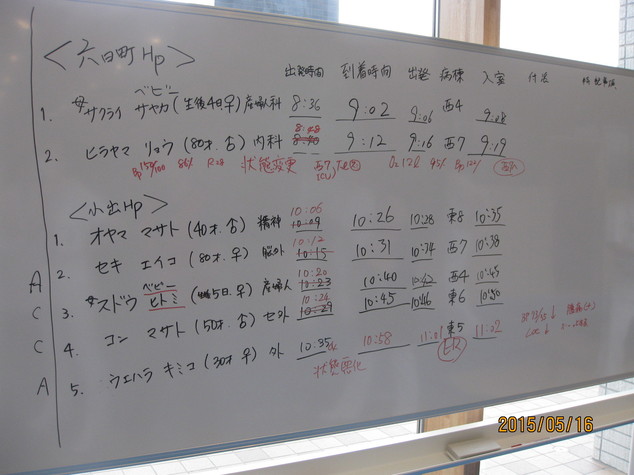 <六日町Hp> 出発時間 到着時間 出発 病棟 入室
1. サクライ ベビー サヤカ (生後4日 ♀) 産婦人科 8:36 9:02 9:06 西4 9:08
8:48
2. ヒラヤマ リョウ (80才.♂) 内科 8:40 9:12 9:16 西7 9:19
Bp 150/100 86/ R28 状態変更 西7 O2 12ℓ 95%
<小出Hp>
10:06
1. オヤマ マサト (40才.♂) 精神 10:09 10:26 10:28 東8 10:35
10:12
2. セキ エイコ (80才.♀) 脳外 10:15 10:31 10:34 西7 10:38
10:20
A 3. スドウ ベビー ヒトミ (5日.♀) 産婦人 10:23 10:40 10:42 西4 10:45
10:26
C 4. コン マサト (50才.♂) セ外 10:29 10:45 10:46 東6 10:50
C
A 5. ウエハラ キミコ (30才 ♀) 外 10:35 10:58 11:01 東5 11:02
状態悪化 ER
2015/05/16